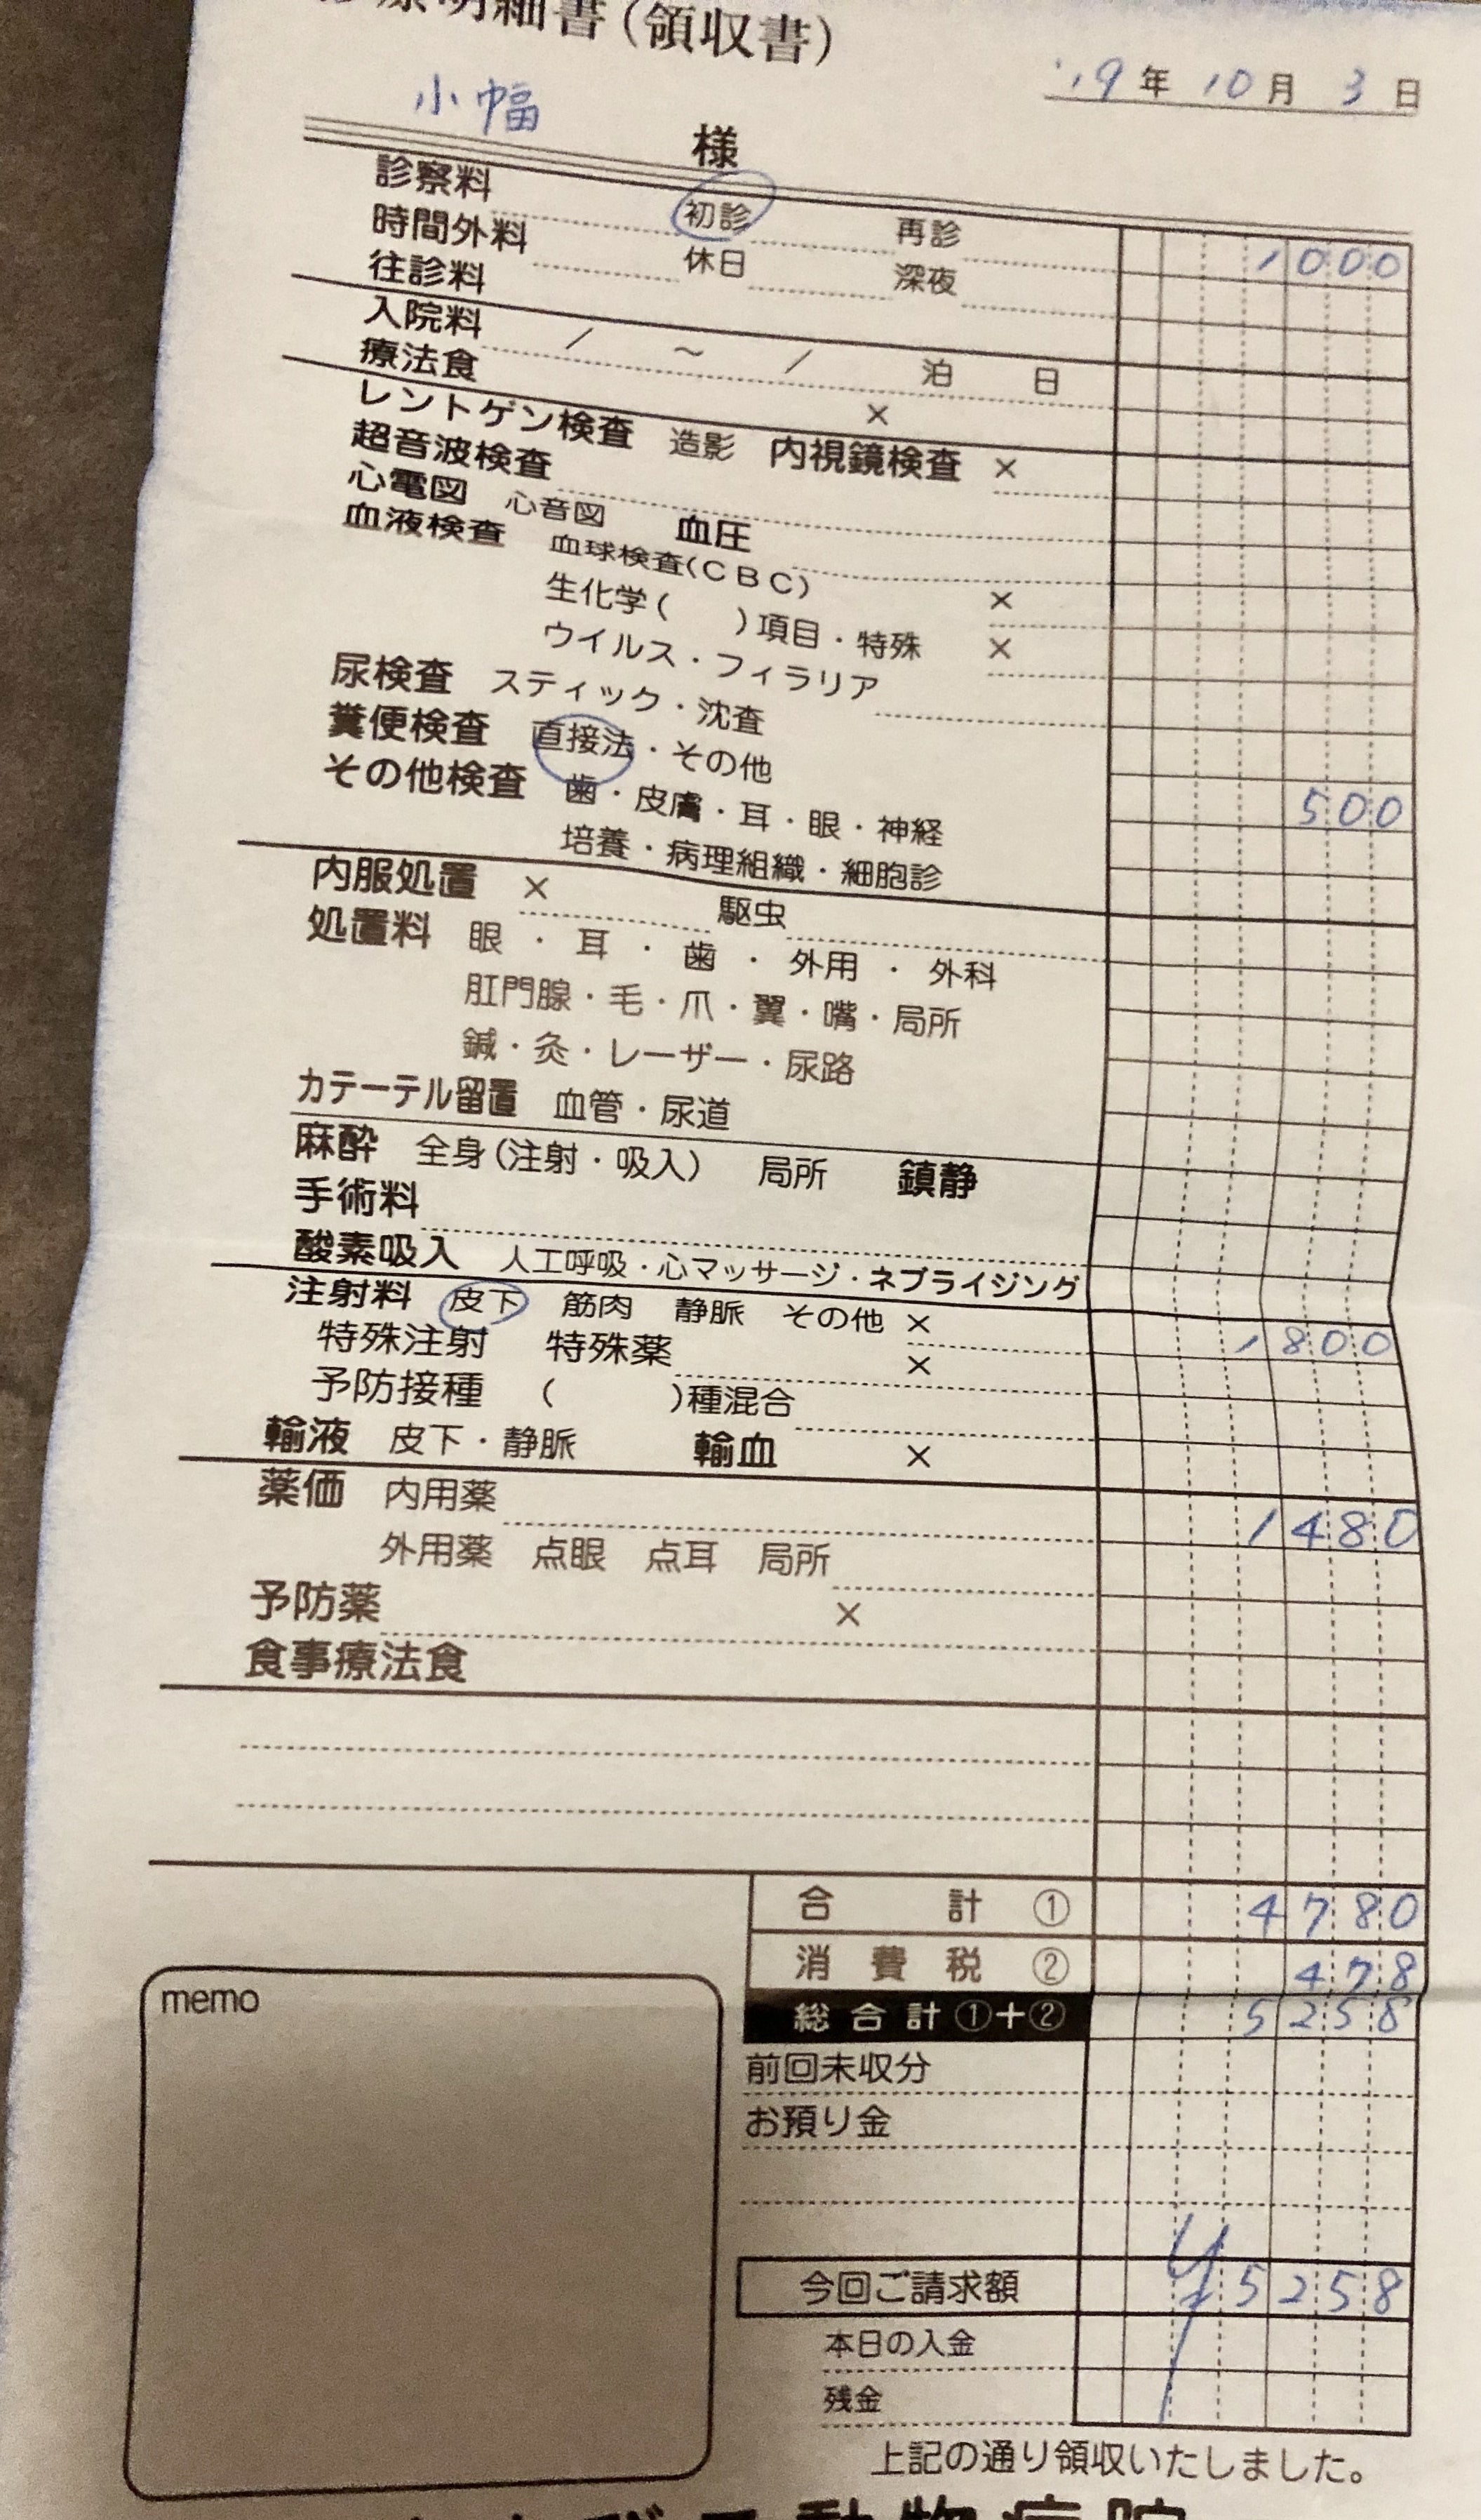 診療明細書(領収書)
'19年 10月 3日
小幡 様
診察料 初診 再診 1000
時間外料 休日 深夜
往診料
入院料 / ～ / 泊 日
療法食 ×
レントゲン検査 造影 内視鏡検査 ×
超音波検査
心電図 心音図 血圧
血液検査 血球検査(CBC) ×
生化学( )項目・特殊 ×
ウイルス・フィラリア
尿検査 スティック・沈査
糞便検査 直接法・その他 500
その他検査 歯・皮膚・耳・眼・神経
培養・病理組織・細胞診
内服処置 × 駆虫
処置料 眼・耳・歯・外用・外科
肛門腺・毛・爪・翼・嘴・局所
鍼・灸・レーザー・尿路
カテーテル留置 血管・尿道
麻酔 全身(注射・吸入) 局所 鎮静
手術料
酸素吸入 人工呼吸・心マッサージ・ネブライジング
注射料 皮下 筋肉 静脈 その他 × 1800
特殊注射 特殊薬 ×
予防接種 ( )種混合
輸液 皮下・静脈 輸血 ×
薬価 内用薬 1480
外用薬 点眼 点耳 局所
予防薬 ×
食事療法食
合計① 4780
消費税② 478
総合計①+② 5258
memo
前回未収分
お預り金
今回ご請求額 ¥5258
本日の入金
残金
上記の通り領収いたしました。
動物病院